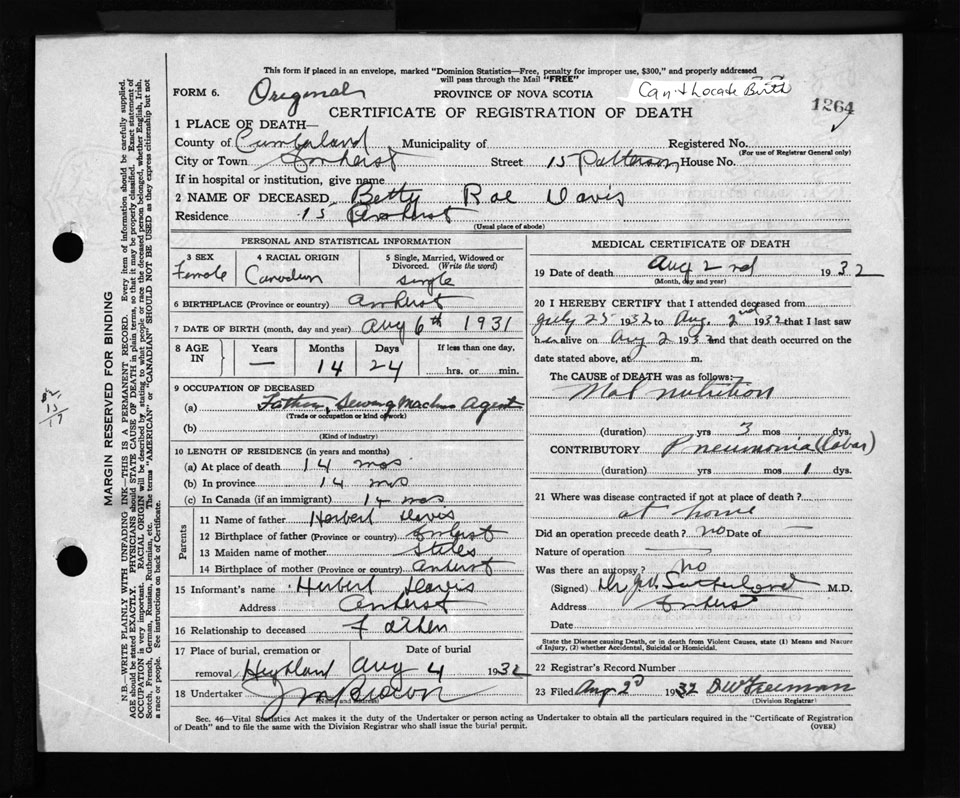 This form if placed in an envelope, marked "Dominion Statistics—Free, penalty for improper use, $300," and properly addressed
will pass through the Mail "FREE"
FORM 6. Original PROVINCE OF NOVA SCOTIA Can't Locate Birth
CERTIFICATE OF REGISTRATION OF DEATH 1264
1 PLACE OF DEATH—
County of Cumberland Municipality of Registered No.
(For use of Registrar General only)
City or Town Amherst Street 15 Patterson House No.
If in hospital or institution, give name
2 NAME OF DECEASED Betty Rae Davis
Residence 15 Amherst
(Usual place of abode)
PERSONAL AND STATISTICAL INFORMATION
3 SEX 4 RACIAL ORIGIN 5 Single, Married, Widowed or
Divorced. (Write the word)
Female Canadian single
6 BIRTHPLACE (Province or country) Amherst
7 DATE OF BIRTH (month, day and year) Aug 6th 1931
8 AGE IN Years Months Days If less than one day,
— 14 24 hrs. or min.
9 OCCUPATION OF DECEASED
(a) Father, Sewing Machine Agent
(Trade or occupation or kind of work)
(b)
(Kind of industry)
10 LENGTH OF RESIDENCE (in years and months)
(a) At place of death 14 mos
(b) In province 14 mos
(c) In Canada (if an immigrant) 14 mos
Parents
11 Name of father Herbert Davis
12 Birthplace of father (Province or country) Amherst
13 Maiden name of mother Stiles
14 Birthplace of mother (Province or country) Amherst
15 Informant's name Herbert Davis
Address Amherst
16 Relationship to deceased Father
17 Place of burial, cremation or Date of burial
removal Highland Aug 4 1932
18 Undertaker
(Name and address)
MEDICAL CERTIFICATE OF DEATH
19 Date of death Aug 2nd 1932
(Month, day and year)
20 I HEREBY CERTIFY that I attended deceased from
July 25 1932 to Aug. 2nd 1932 that I last saw
her alive on Aug 2 1932 and that death occurred on the
date stated above, at m.
The CAUSE of DEATH was as follows:
Mal nutrition
(duration) yrs 3 mos dys.
CONTRIBUTORY Pneumonia (lobar)
(duration) yrs mos 1 dys.
21 Where was disease contracted if not at place of death?
at home
Did an operation precede death? no Date of —
Nature of operation —
Was there an autopsy? no
(Signed) Sutherland M.D.
Address Amherst
Date
State the Disease causing Death, or in death from Violent Causes, state (1) Means and Nature
of Injury, (2) whether Accidental, Suicidal or Homicidal.
22 Registrar's Record Number
23 Filed Aug 2d 1932 Freeman
(Division Registrar)
Sec. 46—Vital Statistics Act makes it the duty of the Undertaker or person acting as Undertaker to obtain all the particulars required in the "Certificate of Registration
of Death" and to file the same with the Division Registrar who shall issue the burial permit. (OVER)
MARGIN RESERVED FOR BINDING
N.B.—WRITE PLAINLY WITH UNFADING INK—THIS IS A PERMANENT RECORD. Every item of information should be carefully supplied.
AGE should be stated EXACTLY. PHYSICIANS should STATE CAUSE OF DEATH in plain terms, so that it may be properly classified. Exact statement of
OCCUPATION is very important. RACIAL ORIGIN will be described by stating to what people or race the deceased person belonged, whether English, Irish,
Scotch, French, German, Russian, Ruthenian, etc. The terms "AMERICAN" or "CANADIAN" SHOULD NOT BE USED as they express citizenship but not
a race or people. See instructions on back of Certificate.